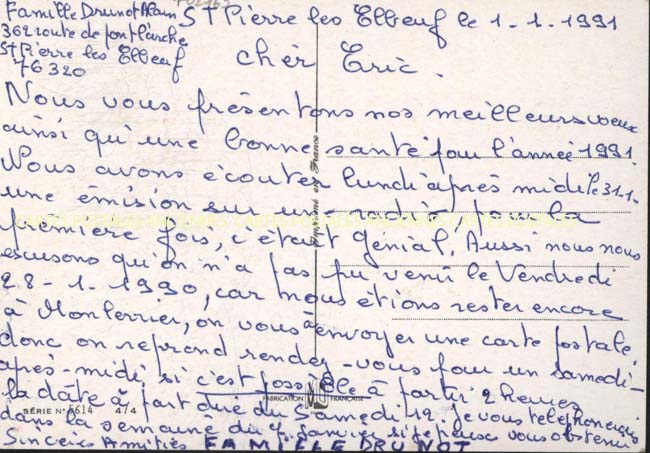 Famille Drunot Alain
362 route de pont de l'arche
St Pierre les Elbeuf
76320
St Pierre les Elbeuf le 1.1.1991
Cher Eric.
Nous vous présentons nos meilleurs voeux
ainsi qu'une bonne santé pour l'année 1991.
Nous avons écouter lundi après midi le 31.1.
une émision sur une radio, pour la
première fois, c'était génial. Aussi nous nous
escusons qu'on n'a pas pu venir le Vendredi
28-1-1990, car nous étions rester encore
à on vous à envoyer une carte postale,
donc on reprend rendez-vous pour un samedi
après-midi si c'est possible à partir 2 heures
la date à part due du samedi 12. Je vous téléphonerais
dans la semaine du janvier si je peux vous obtenir
Sincères Amitiés FAMILLE DRUNOT
Imprimé en France
SÉRIE N° 6614 4/4
FABRICATION FRANÇAISE